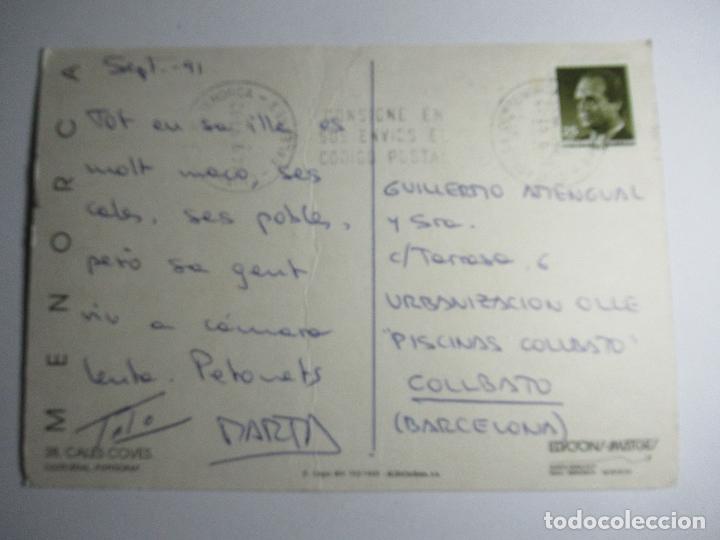 MENORCA
Sept.-91
Tot en sa illa es
molt maco, ses
cales, ses pobles,
però sa gent
viu a cámara
lenta. Petonets
Toto
MARTA
38. CALES COVES
MENORCA
CONSIGNE EN
SUS ENVIOS EL
CODIGO POSTAL
GUILLERMO AMENGUAL
y Sra.
c/Tarrasa. 6
URBANIZACION OLLE
"PISCINAS COLLBATO"
COLLBATO
(BARCELONA)
EDICIONS
todocoleccion